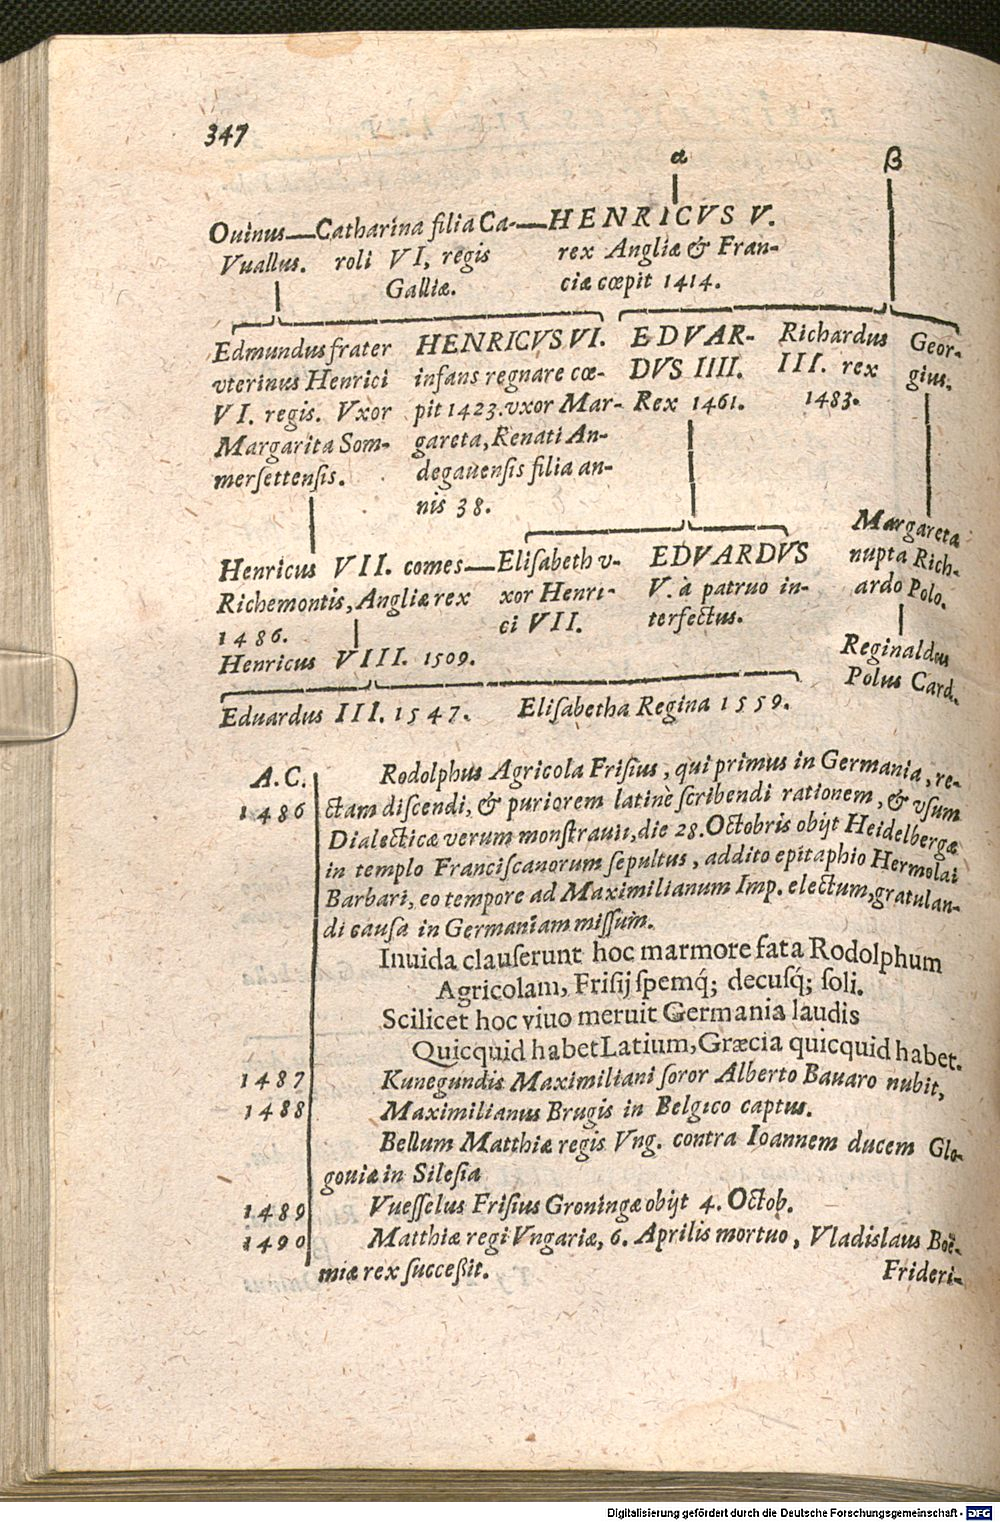 347
α β
Ouinus—Catharina filia Ca-—HENRICVS V.
Vuallus. roli VI, regis rex Angliæ & Fran-
Galliæ. ciæ cœpit 1414.
Edmundus frater HENRICVS VI. EDVAR- Richardus Geor-
vterinus Henrici infans regnare cœ- DVS IIII. III. rex gius.
VI. regis. Vxor pit 1423. vxor Mar- Rex 1461. 1483.
Margarita Som- gareta, Renati An-
merſettenſis. degauenſis filia an-
nis 38.
Margareta
nupta Rich-
ardo Polo.
Henricus VII. comes—Eliſabeth v- EDVARDVS
Richemontis, Angliæ rex xor Henri- V. à patruo in-
1486. ci VII. terfectus.
Henricus VIII. 1509.
Reginaldus
Polus Card.
Eduardus III. 1547. Eliſabetha Regina 1559.
A.C. Rodolphus Agricola Friſius, qui primus in Germania, re-
1486 ctam diſcendi, & puriorem latinè ſcribendi rationem, & vſum
Dialecticæ verum monſtrauit, die 28. Octobris obijt Heidelbergæ
in templo Franciſcanorum ſepultus, addito epitaphio Hermolai
Barbari, eo tempore ad Maximilianum Imp. electum, gratulan-
di cauſa in Germaniam miſſum.
Inuida clauſerunt hoc marmore fata Rodolphum
Agricolam, Friſij ſpemq́; decuſq́; ſoli.
Scilicet hoc viuo meruit Germania laudis
Quicquid habet Latium, Græcia quicquid habet.
1487 Kunegundis Maximiliani ſoror Alberto Bauaro nubit,
1488 Maximilianus Brugis in Belgico captus.
Bellum Matthiæ regis Vng. contra Ioannem ducem Glo-
gouiæ in Sileſia
1489 Vueſſelus Friſius Groningæ obijt 4. Octob.
1490 Matthiæ regi Vngariæ, 6. Aprilis mortuo, Vladislaus Boë-
miæ rex ſucceßit. Frideri-
Digitalisierung gefördert durch die Deutsche Forschungsgemeinschaft - DFG